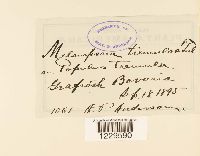 Melampsora tremulae Tul
on Populus tremula
Grafrath Bavaria
Sep 18 1895
1061 H. W. Anderson
1229590